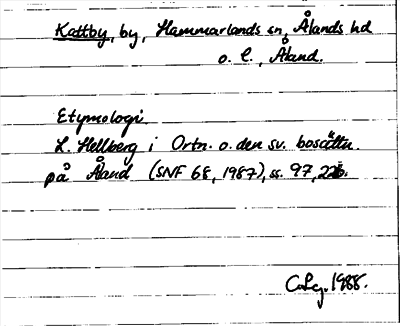 Kattby, by, Hammarlands sn, Ålands hd
o. l., Åland.
Etymologi
L. Hellberg i Ortn. o. den sv. bosättn.
på Åland (SNF 68, 1987), ss. 97,
1988.